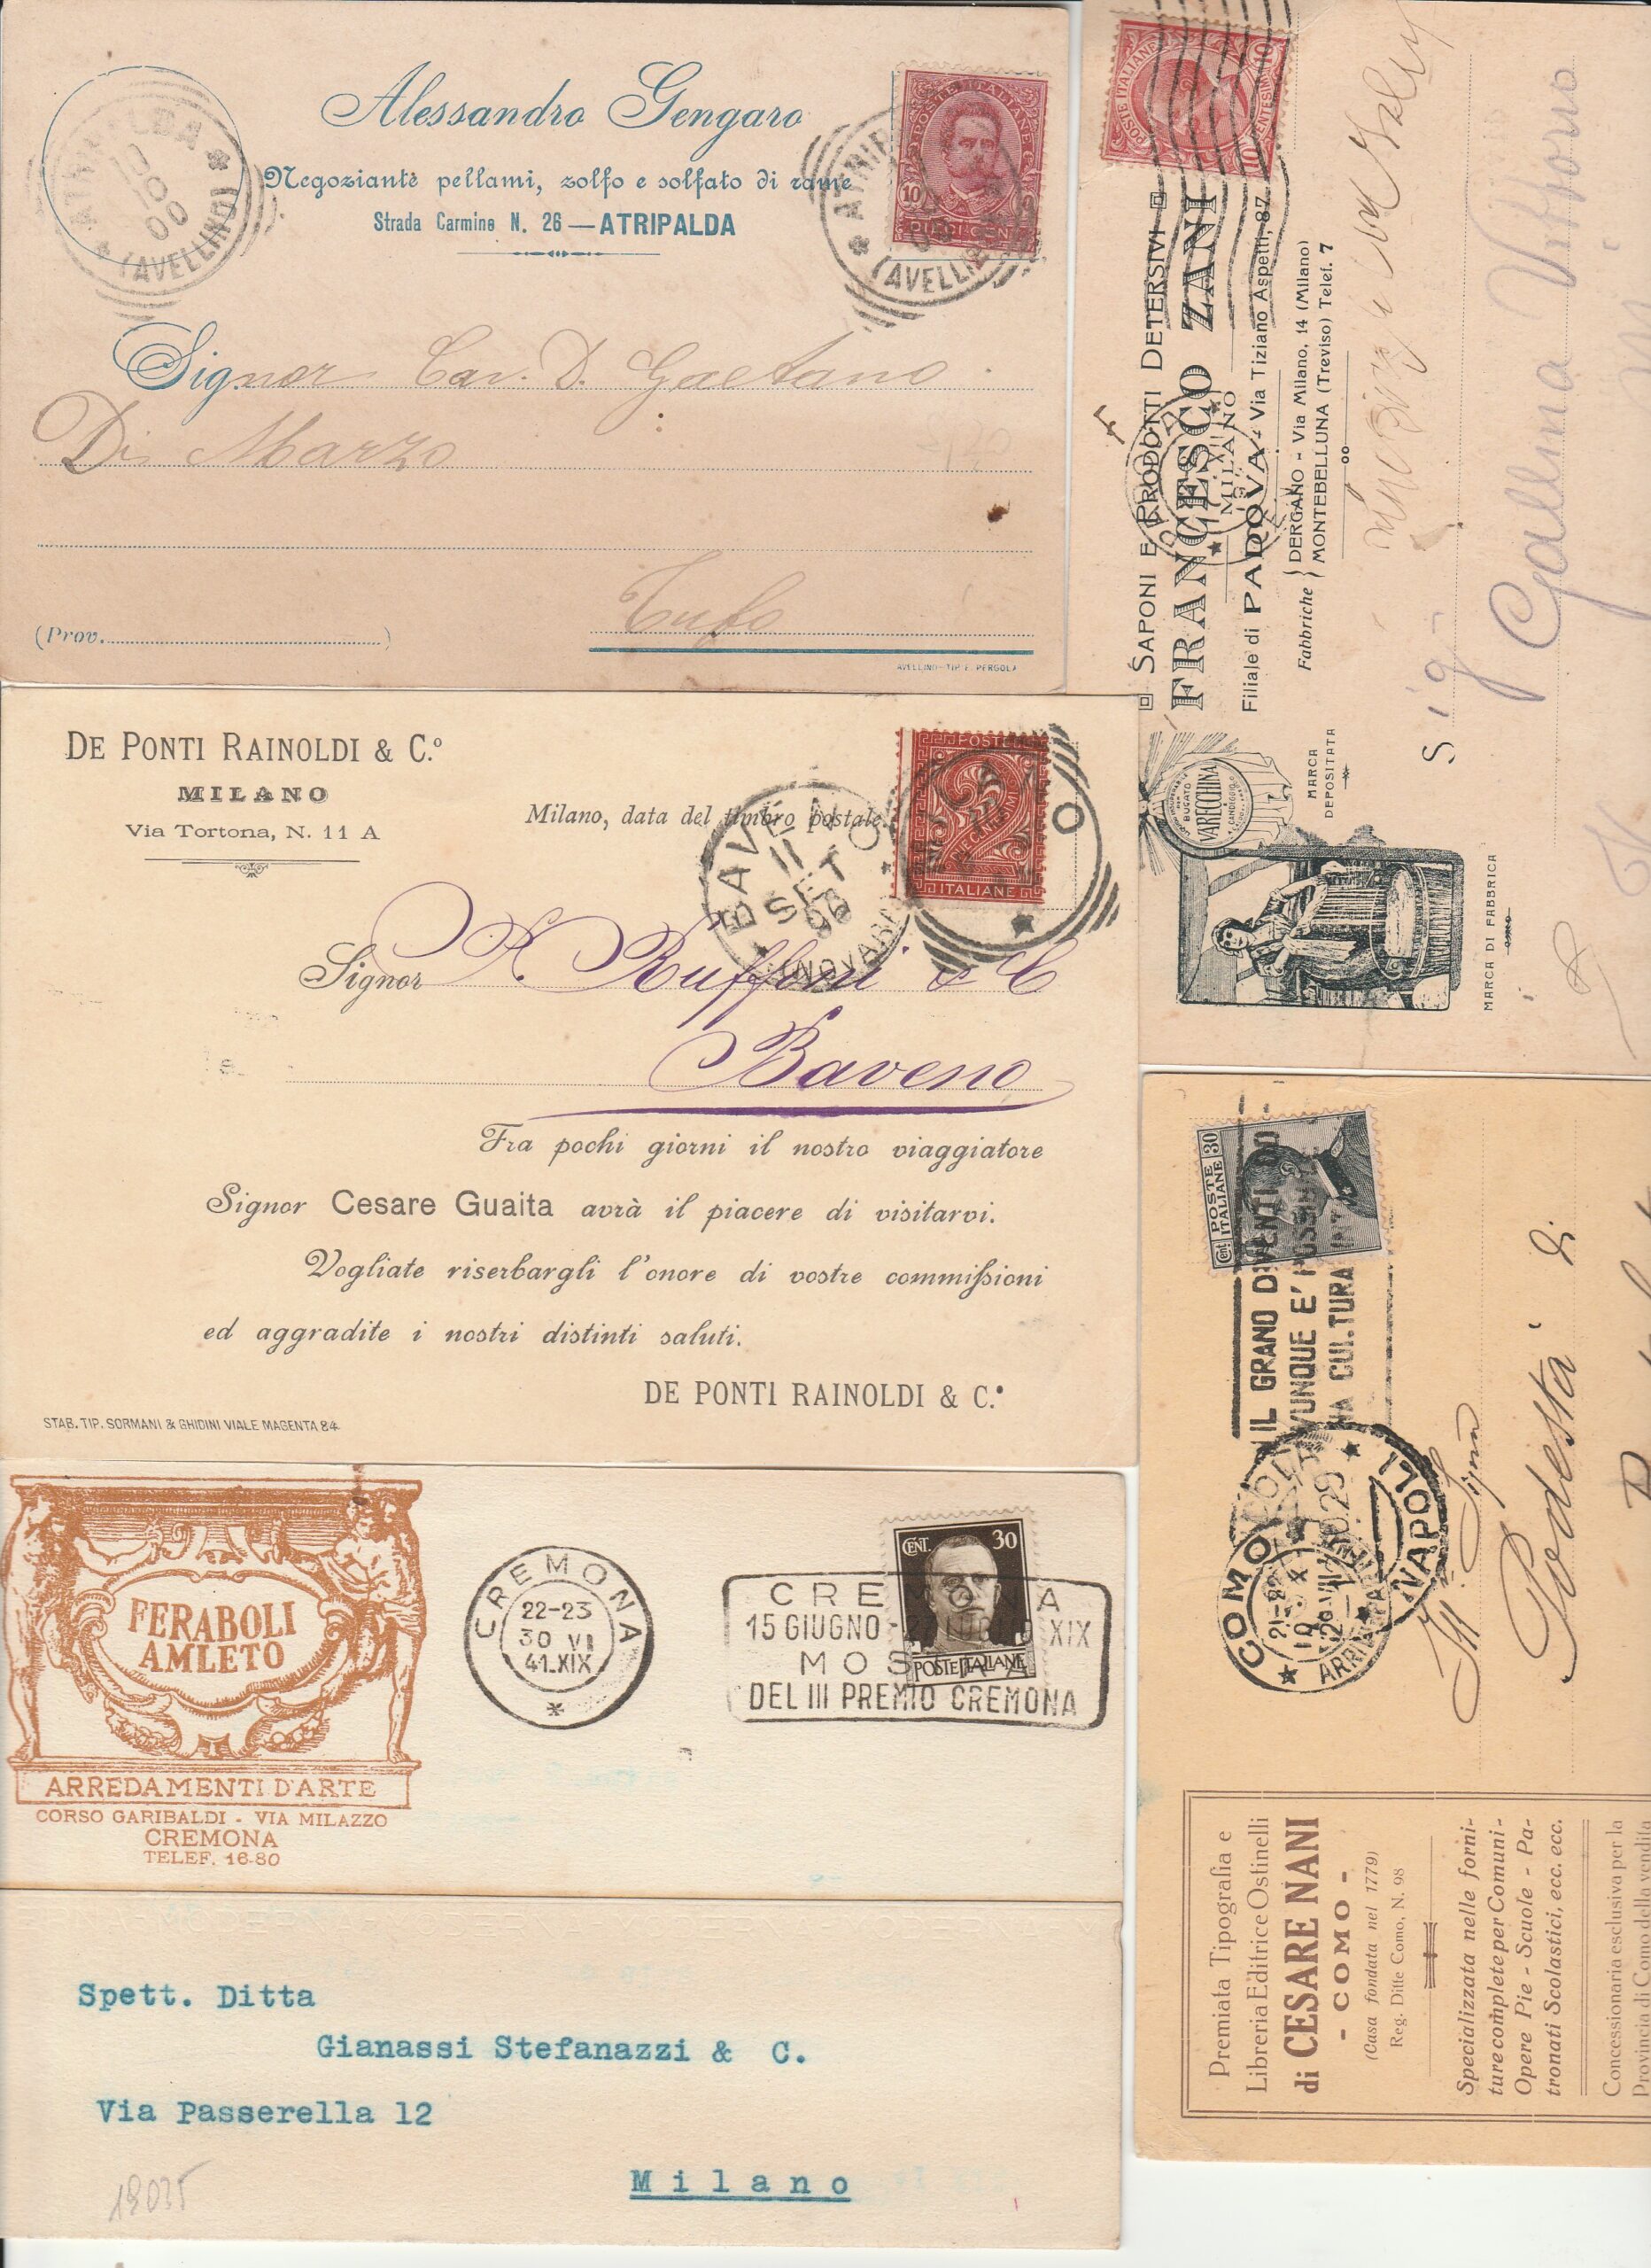 Alessandro Gengaro
Negoziante pellami, zolfo e solfato di rame
Strada Carmine N. 26 — ATRIPALDA
ATRIPALDA
10
10
00
(AVELLINO)
POSTE ITALIANE
10
DIECI CENT
(AVELLINO)
Signor Cav. D. Gaetano
Di Marzo
Tufo
(Prov.)
AVELLINO-TIP. E. PERGOLA
DE PONTI RAINOLDI & C.º
MILANO
Via Tortona, N. 11 A
Milano, data del timbro postale.
BAVENO
11
SET
(NOVARA)
POSTE
DUE CENTESIMI
2
ITALIANE
Signor A. Ruffoni & C
Baveno
Fra pochi giorni il nostro viaggiatore
Signor Cesare Guaita avrà il piacere di visitarvi.
Vogliate riserbargli l'onore di vostre commissioni
ed aggradite i nostri distinti saluti.
DE PONTI RAINOLDI & C.º
STAB. TIP. SORMANI & GHIDINI VIALE MAGENTA 84
FERABOLI
AMLETO
ARREDAMENTI D'ARTE
CORSO GARIBALDI - VIA MILAZZO
CREMONA
TELEF. 16-80
CREMONA
22-23
30 VI
41.XIX
CENT. 30
POSTE ITALIANE
CREMONA
15 GIUGNO - XIX
MOSTRA
DEL III PREMIO CREMONA
Spett. Ditta
Gianassi Stefanazzi & C.
Via Passerella 12
Milano
18035
POSTE ITALIANE
10 CENTESIMI 10
SAPONI E PRODOTTI DETERSIVI
FRANCESCO ZANI
MILANO
Filiale di PADOVA - Via Tiziano Aspetti, 87
Fabbriche { DERGANO - Via Milano, 14 (Milano)
MONTEBELLUNA (Treviso) Telef. 7
BUGATO
VARECHINA
CANDEGGIO
MARCA
DEPOSITATA
MARCA DI FABBRICA
Sig. Gallina Vittorio
Cent 30
POSTE
ITALIANE
IL GRANO DI
OVUNQUE E' POSSIBILE
UNA CULTURA
COMO
21-22
NAPOLI
Ill. Signor
Podestà di
Premiata Tipografia e
Libreria Editrice Ostinelli
di CESARE NANI
- COMO -
(Casa fondata nel 1779)
Reg. Ditte Como, N. 98
Specializzata nelle forni-
ture complete per Comuni -
Opere Pie - Scuole - Pa-
tronati Scolastici, ecc. ecc.
Concessionaria esclusiva per la
Provincia di Como della vendita